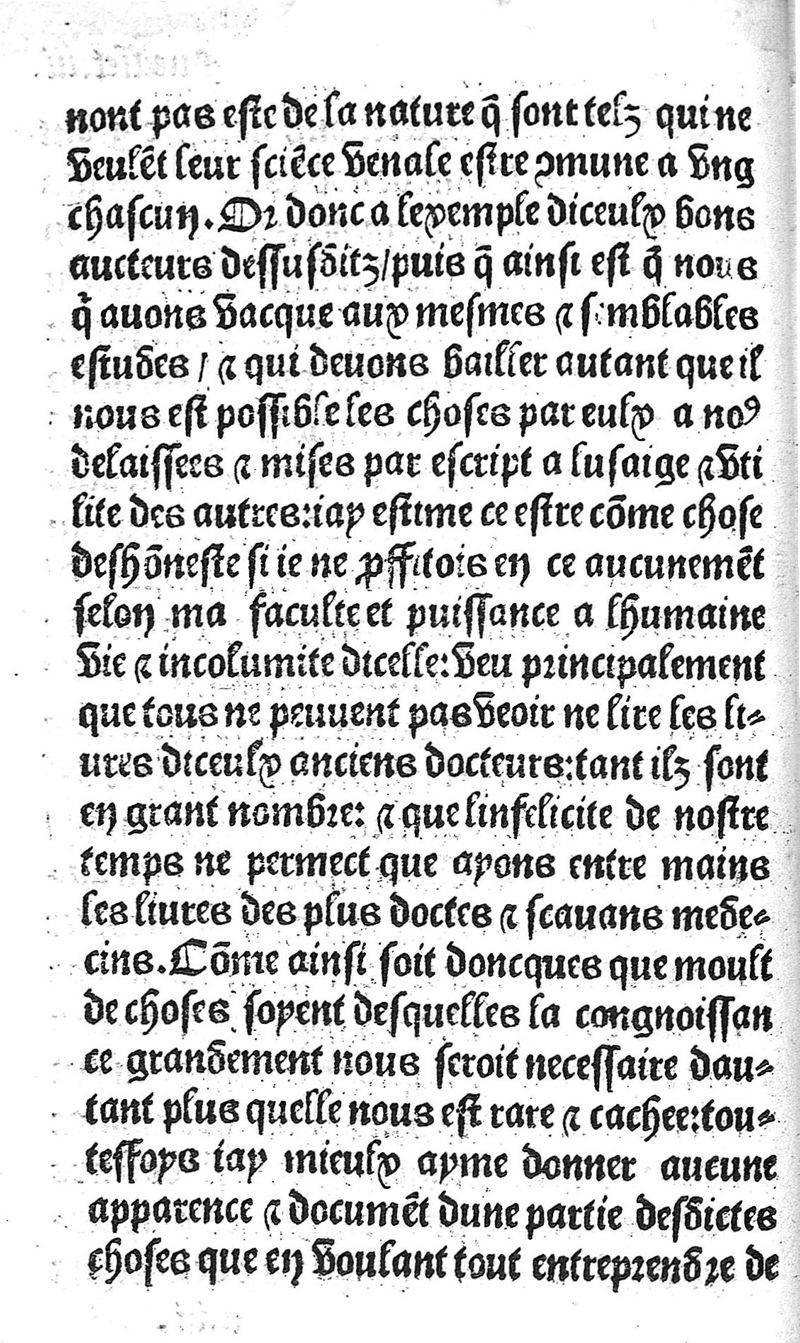 nont pas este de la nature q̃ sont telz qui ne
veulẽt leur sciẽce venale estre ꝯmune a vng
chascun. Or donc a lexemple diceulx bons
aucteurs dessusditz/puis q̃ ainsi est q̃ nous
q̃ auons vacque aux mesmes ⁊ semblables
estudes / ⁊ qui deuons bailler autant que il
nous est possible les choses par eulx a noꝰ
delaissees ⁊ mises par escript a lusaige ⁊ vti
lite des autres:iay estime ce estre cõme chose
deshõneste si ie ne ꝓffitois en ce aucunemẽt
selon ma faculte et puissance a lhumaine
vie ⁊ incolumite dicelle:veu principalement
que tous ne peuuent pas veoir ne lire les li⸗
ures diceulx anciens docteurs:tant ilz sont
en grant nombre: ⁊ que linfelicite de nostre
temps ne permect que ayons entre mains
les liures des plus doctes ⁊ scauans mede⸗
cins. Cõme ainsi soit doncques que moult
de choses soyent desquelles la congnoissan
ce grandement nous seroit necessaire dau⸗
tant plus quelle nous est rare ⁊ cachee:tou⸗
teffoys iay mieulx ayme donner aucune
apparence ⁊ documẽt dune partie desdictes
choses que en voulant tout entreprendre de